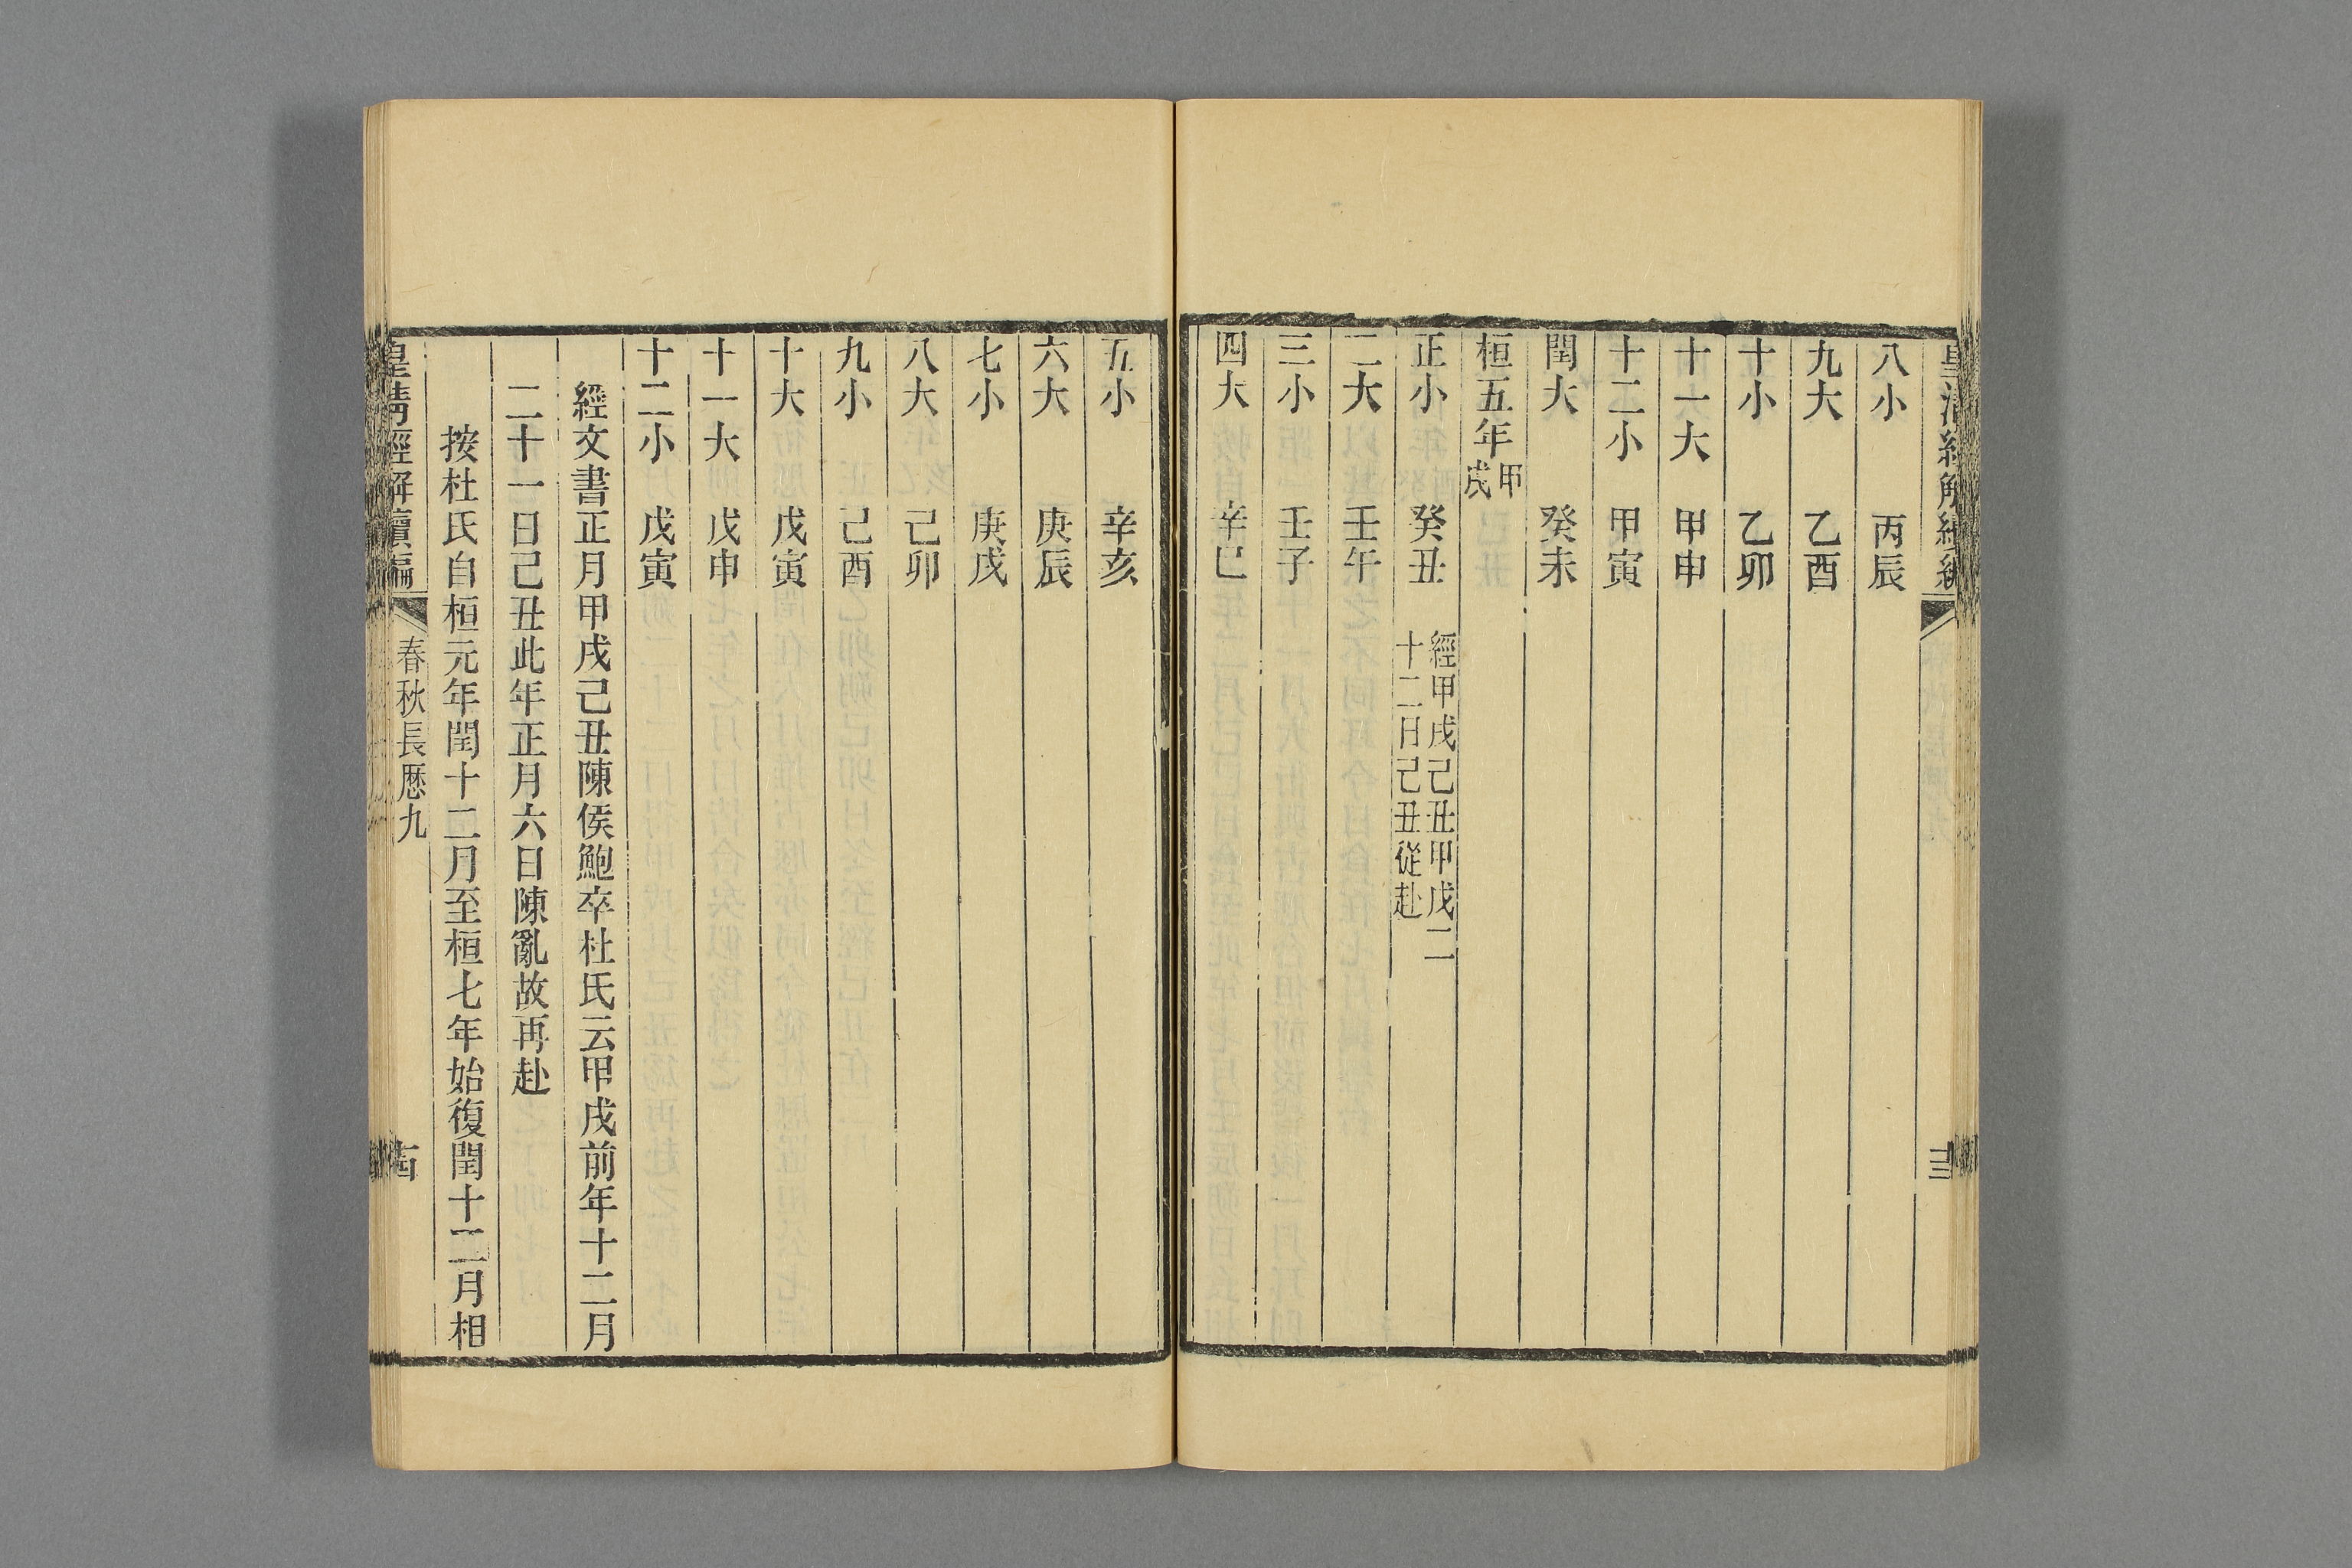 八小 丙辰
九大 乙酉
十小 乙卯
十一大 甲申
十二小 甲寅
閏大 癸未
桓五年甲戌
正小 癸丑 經甲戌己丑甲戌二
十二日己丑從赴
二大 壬午
三小 壬子
四大 辛巳
五小 辛亥
六大 庚辰
七小 庚戌
八大 己卯
九小 己酉
十大 戊寅
十一大 戊申
十二小 戊寅
經文書正月甲戌己丑陳侯鮑卒杜氏云甲戌前年十二月
二十一日己丑此年正月六日陳亂故再赴
按杜氏自桓元年閏十二月至桓七年始復閏十二月相
皇清經解續編 春秋長厯九